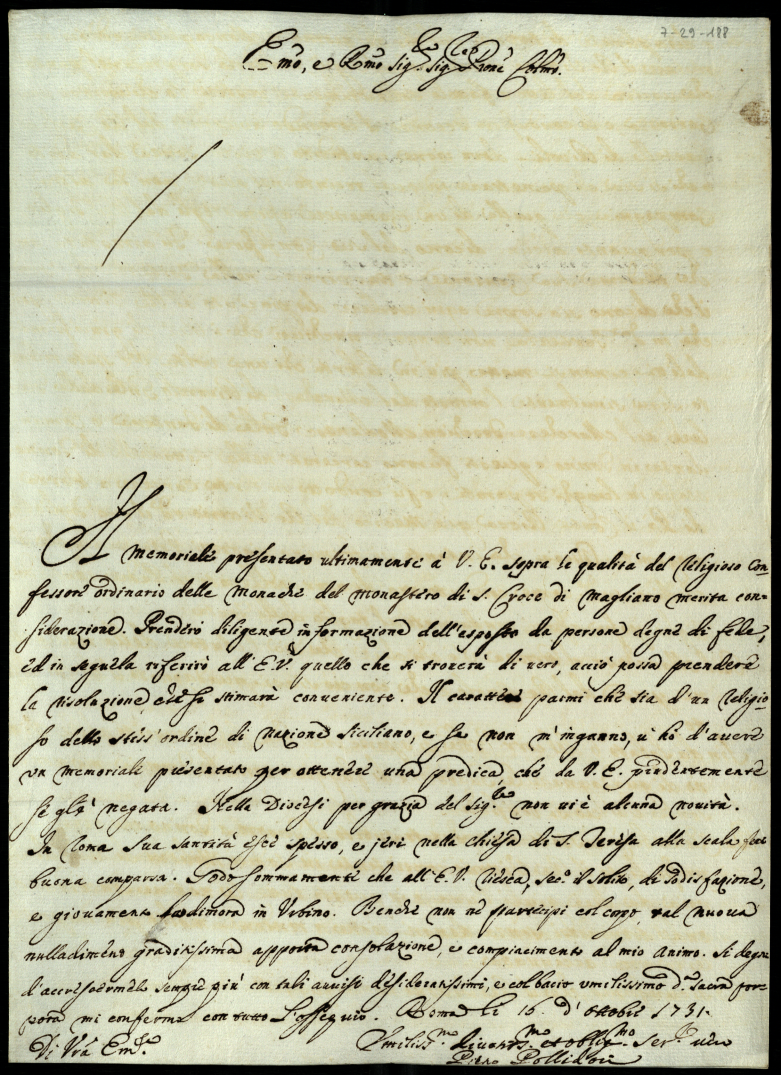 7-29-188
Emo, e Rmo Sig.re Sig.re Pron̄e Colmo.
Il memoriale presentato ultimamente à V. E. sopra le qualità del Religioso Con-
fessore ordinario delle monache del monastero di S. Croce di Magliano merita con-
siderazione. Prenderò diligente informazione dell'esposto da persone degne di fede,
ed in seguela riferirò all'E.V. quello che si troverà di vero, acciò possa prendere
la risolazione che stimarà conveniente. Il carattere parmi che sia d'un Religio-
so dello stess'ordine di nazione Siciliano, e se non m'inganno, vi hò d'avere
un memoriale presentato per ottenere una predica, che da V. E. prudentemente
se gl'è negata. Nella Diocesi per grazia del Sig.re non vi è alcuna novità.
In Roma Sua Santità esce spesso, e jeri nella chiesa di S. Teresa alla scala fece
buona comparsa. Godo sommamente che all'E. V. riesca, sec.o il solito, di sodisfazione,
e giovamento la dimora in Urbino. Benche non ne partecipi col corpo, tal nuova
nulladimeno graditissima apporta consolazione, e compiacimento al mio animo. Si degni
d'accrescermele sempre più con tali avvisi desideratissimi, e col bacio umilissimo d. Sacra Por-
pora mi confermo con tutto l'ossequio. Roma li 16. d'Ottobre 1731.
Di Vrā Em.za
Umiliss.mo divotis.mo et obblig.mo Ser.re vero
Pietro Pollidori